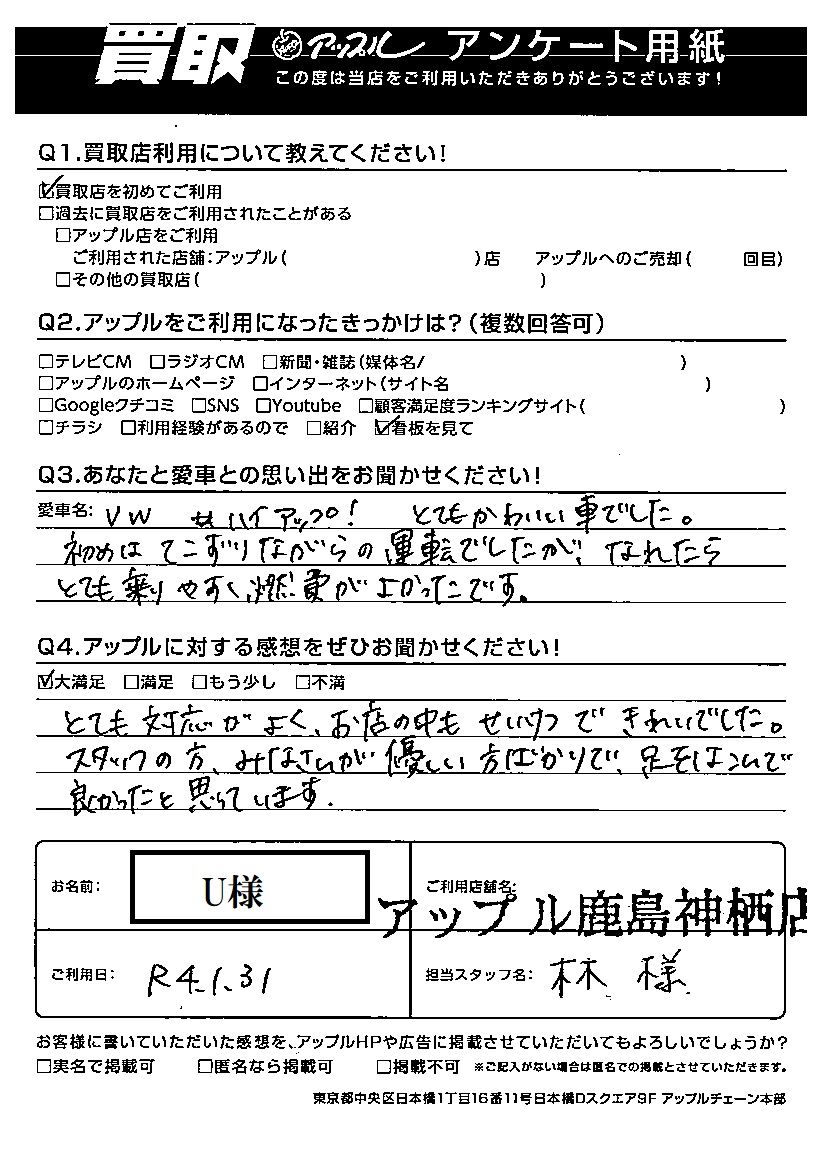 買取 アップル アンケート用紙
この度は当店をご利用いただきありがとうございます!
Q1.買取店利用について教えてください!
☑買取店を初めてご利用
□過去に買取店をご利用されたことがある
□アップル店をご利用
ご利用された店舗:アップル( )店 アップルへのご売却( 回目)
□その他の買取店( )
Q2.アップルをご利用になったきっかけは?(複数回答可)
□テレビCM □ラジオCM □新聞・雑誌(媒体名/ )
□アップルのホームページ □インターネット(サイト名 )
□Googleクチコミ □SNS □Youtube □顧客満足度ランキングサイト( )
□チラシ □利用経験があるので □紹介 ☑看板を見て
Q3.あなたと愛車との思い出をお聞かせください!
愛車名: VW ハイアップ! とてもかわいい車でした。
初めはてこずりながらの運転でしたが、なれたら
とても乗りやすく、燃費がよかったです。
Q4.アップルに対する感想をぜひお聞かせください!
☑大満足 □満足 □もう少し □不満
とても対応がよく、お店の中もせいけつできれいでした。
スタッフの方、みなさいが優しい方ばかりで、足をはこんで
良かったと思っています。
お名前: U様 ご利用店舗名:
アップル鹿島神栖店
ご利用日: R4.1.31 担当スタッフ名: 林 様
お客様に書いていただいた感想を、アップルHPや広告に掲載させていただいてもよろしいでしょうか?
□実名で掲載可 □匿名なら掲載可 □掲載不可 ※ご記入がない場合は匿名での掲載とさせていただきます。
東京都中央区日本橋1丁目16番11号日本橋Dスクエア9F アップルチェーン本部